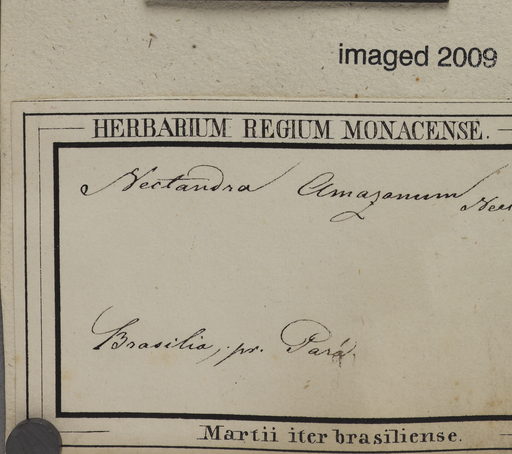 imaged 2009
HERBARIUM REGIUM MONACENSE.
Nectandra Amazonum Nees
Brasilia, pr. Pará.
Martii iter brasiliense.